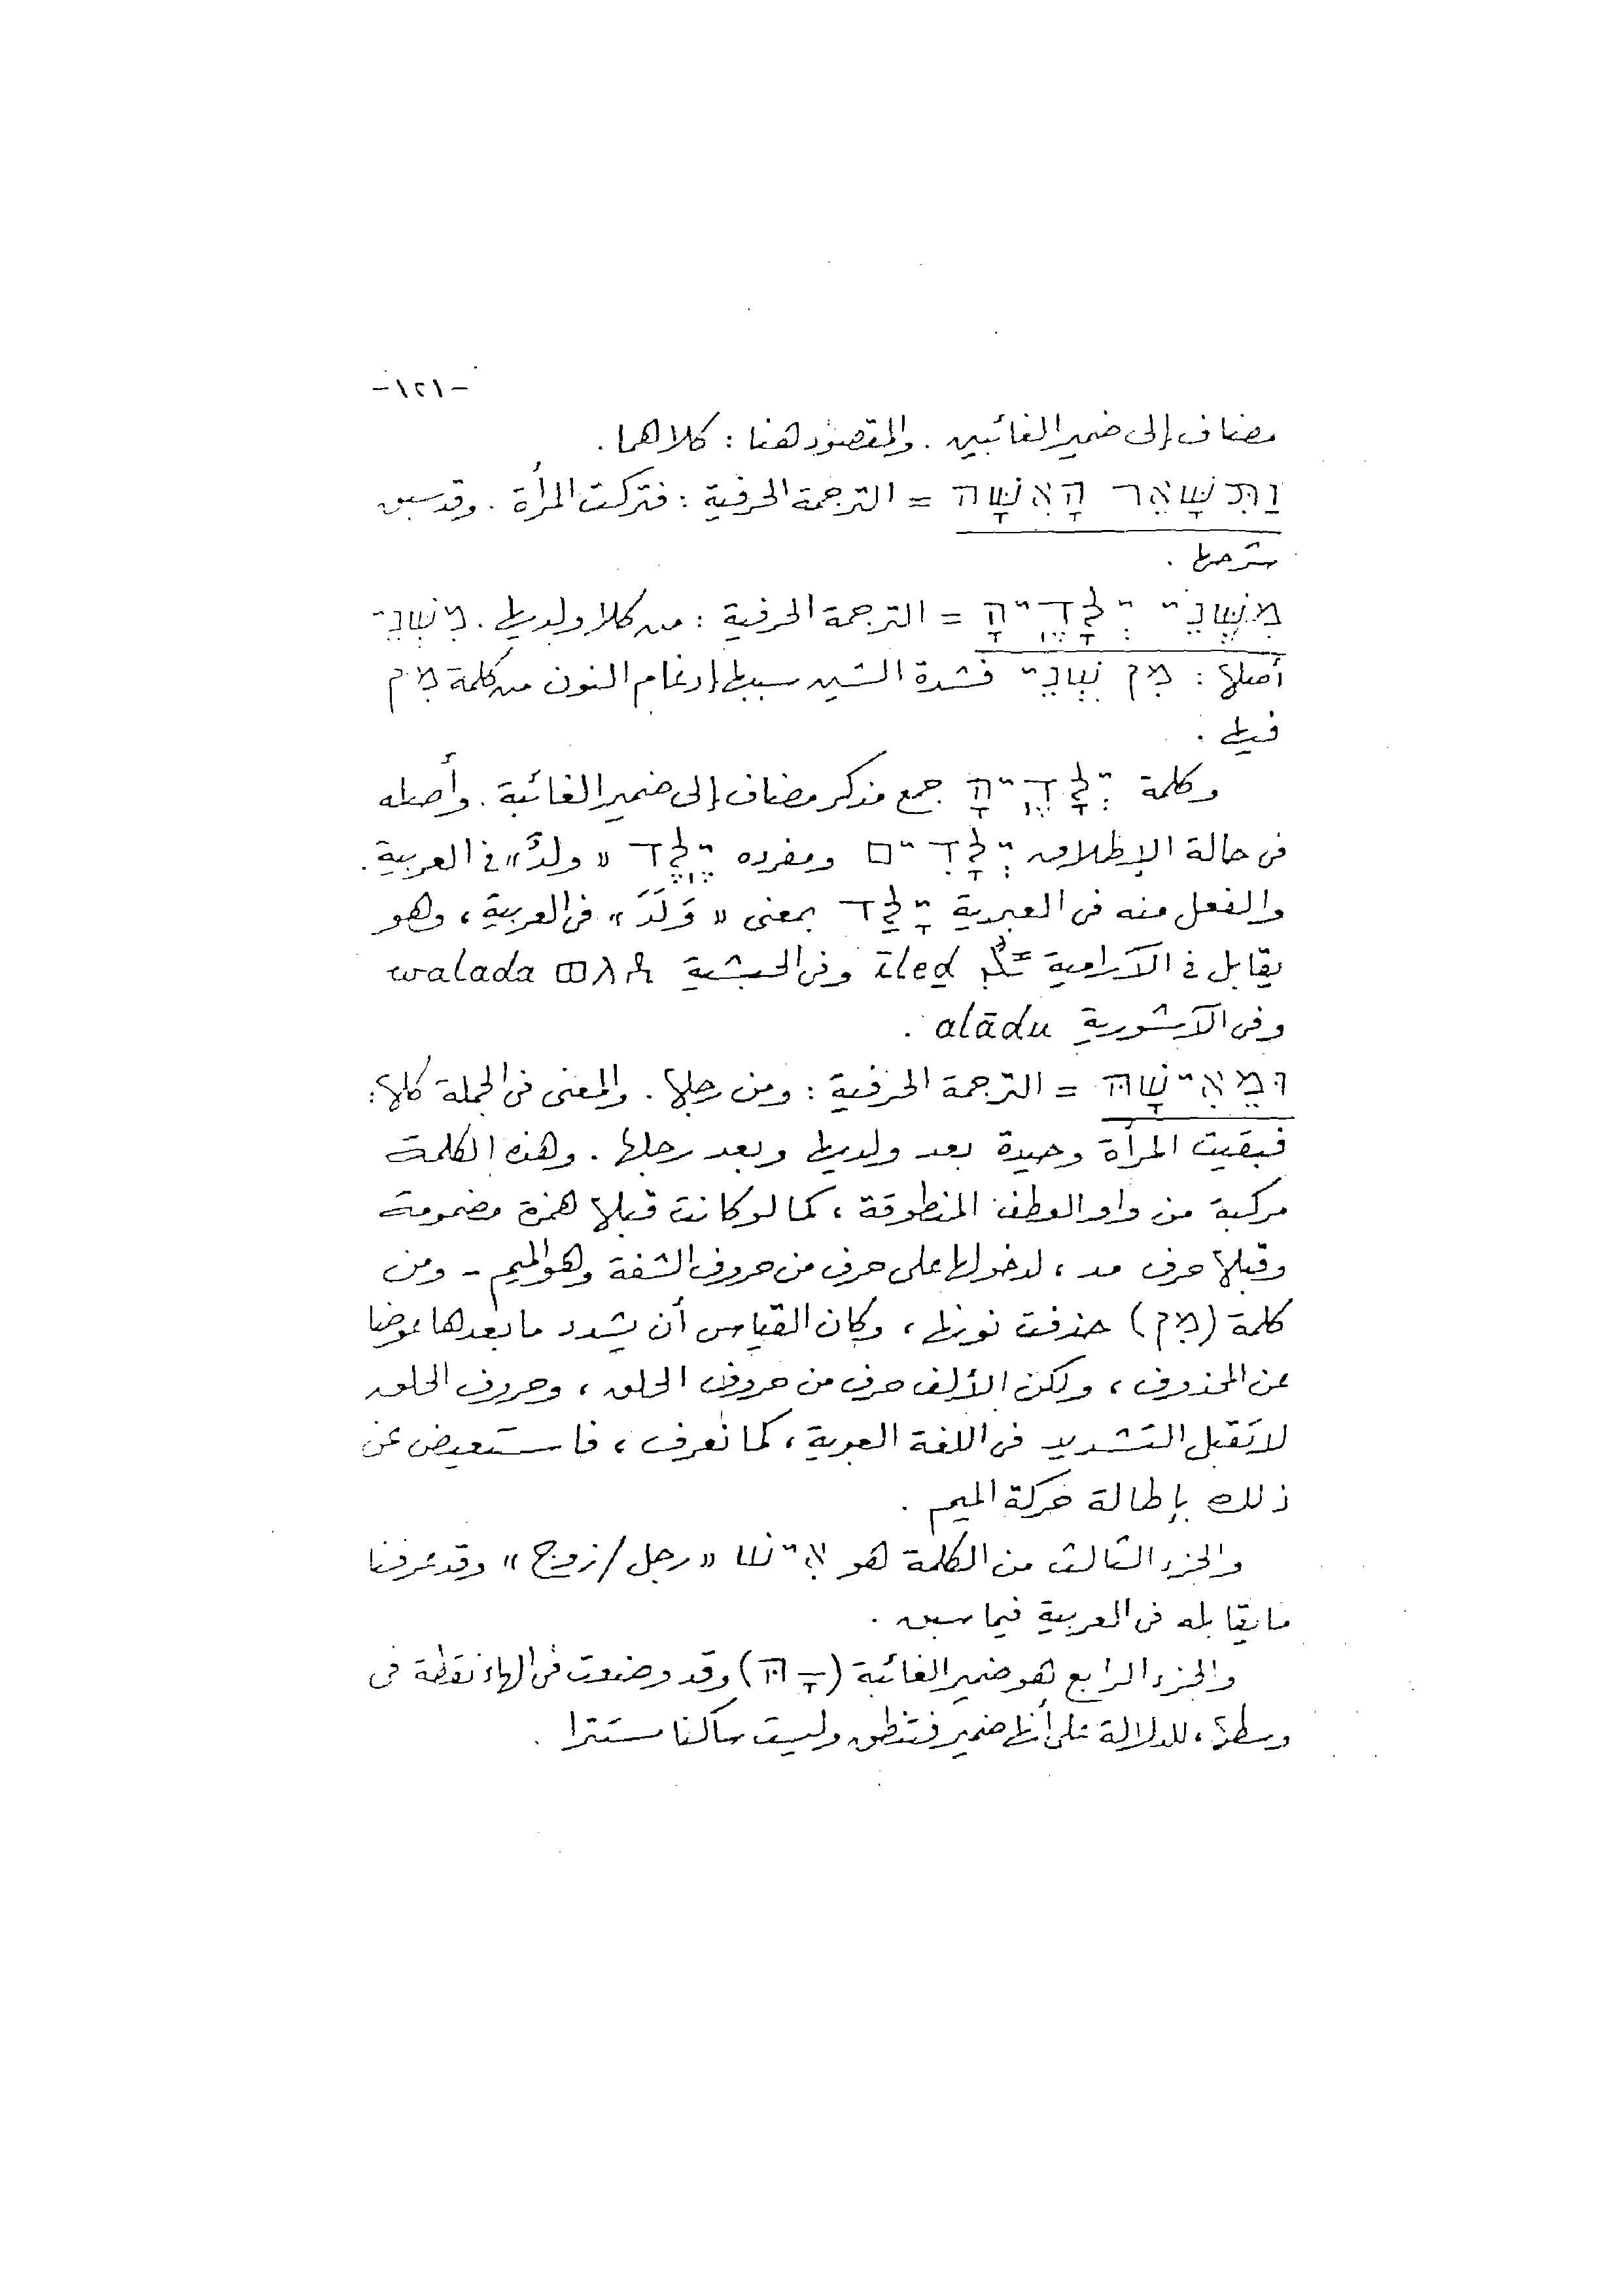 -١٢١-
مضاف إلى ضمير الغائبين . والمقصود هنا : كلاهما .
וַתִּשָּׁאֵר הָאִשָּׁה = الترجمة الحرفية : فتركت المرأة . وقد سبق
شرحها .
מִשְּׁנֵי יְלָדֶיהָ = الترجمة الحرفية : من كلا ولديها . מִשְּׁנֵי
أصلها : מִן שְׁנֵי فشدة الشين سببها إدغام النون من كلمة מִן
فيها .
وكلمة יְלָדֶיהָ جمع مذكر مضاف إلى ضمير الغائبة . وأصله
فى حالة الإطلاق יְלָדִים ومفرده יֶלֶד « ولدٌ » فى العربية .
والفعل منه فى العبرية יָלַד بمعنى « وَلَدَ » فى العربية ، وهو
يقابل فى الآرامية īled وفى الحبشية ወለደ walada
وفى الآشورية alādu .
וּמֵאִישָׁהּ = الترجمة الحرفية : ومن رجلها . والمعنى فى الجملة كلها :
فبقيت المرأة وحيدة بعد ولديها وبعد رجلها . وهذه الكلمة
مركبة من واو العطف المنطوقة ، كما لو كانت قبلها همزة مضمومة
وقبلها حرف مد ، لدخولها على حرف من حروف الشفة وهو الميم - ومن
كلمة ( מִן ) حذفت نونها ، وكان القياس أن يشدد ما بعدها عوضا
عن المحذوف ، ولكن الألف حرف من حروف الحلق ، وحروف الحلق
لا تقبل التشديد فى اللغة العبرية ، كما نعرف ، فاستعيض عن
ذلك بإطالة حركة الميم .
والجزء الثالث من الكلمة هو אִישׁ « رجل / زوج » وقد عرفنا
ما يقابله فى العربية فيما سبق .
والجزء الرابع هو ضمير الغائبة ( ־ָהּ ) وقد وضعت فى الهاء نقطة فى
وسطها ، للدلالة على أنها ضمير فتنطق وليست ساكنا مستترا .